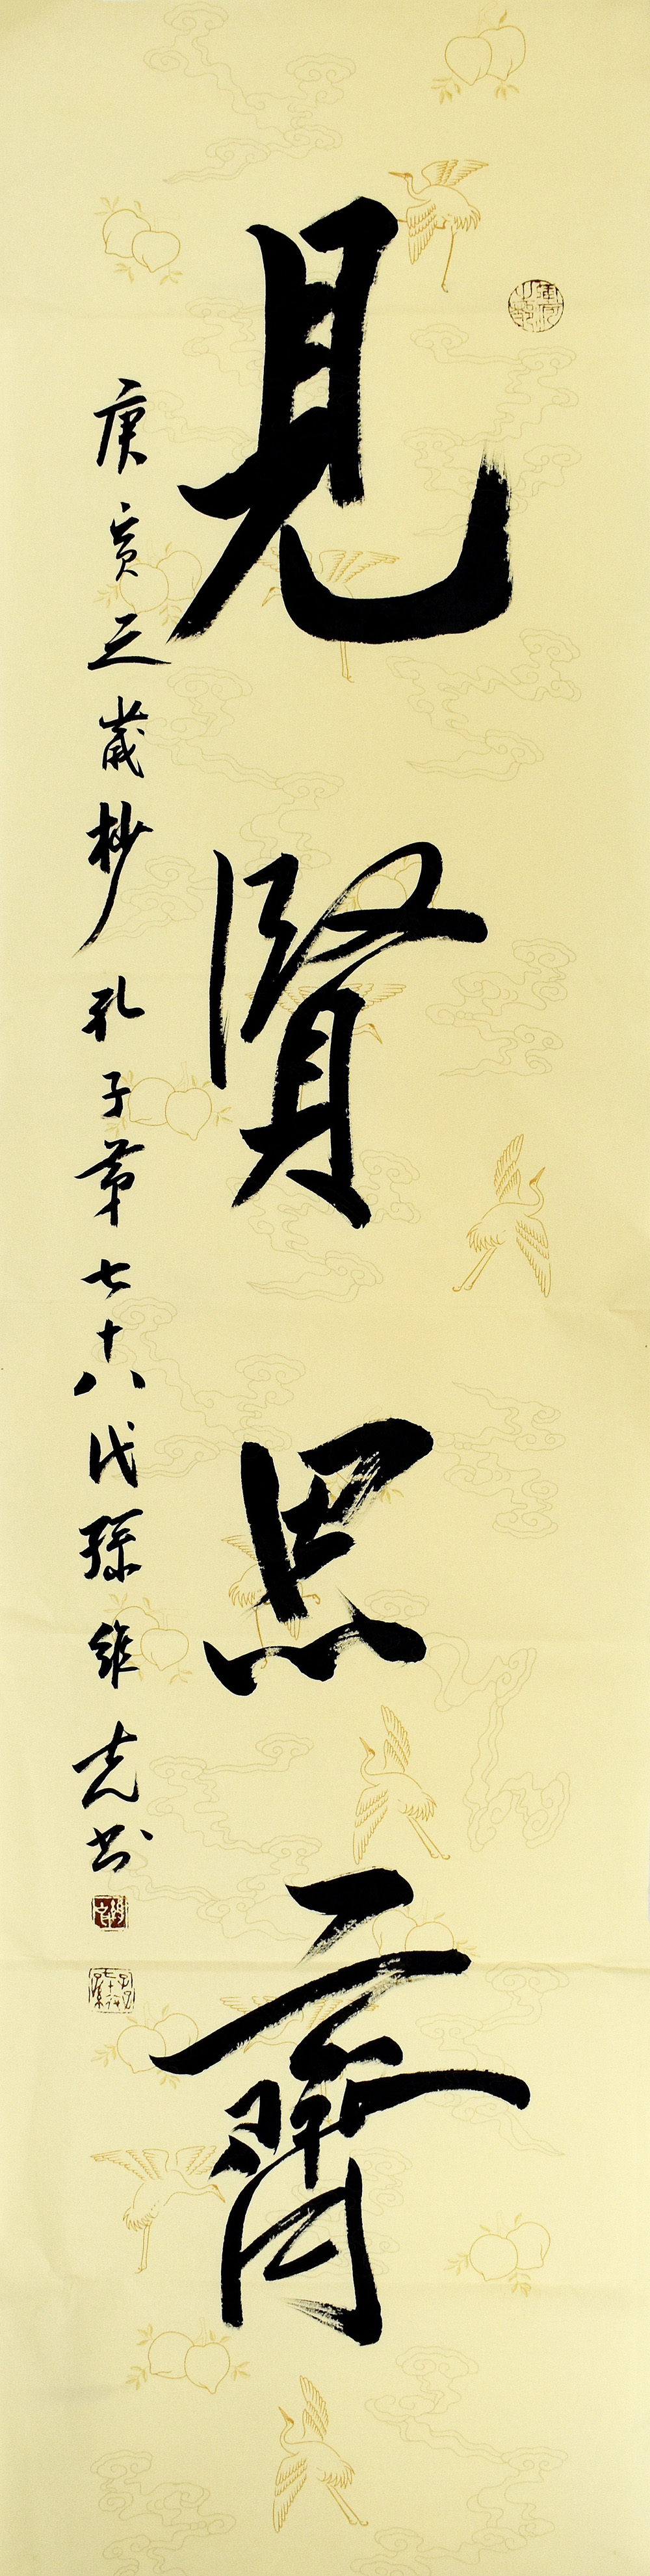 見賢思齊
庚寅之歲杪孔子第七十八代孫維克书